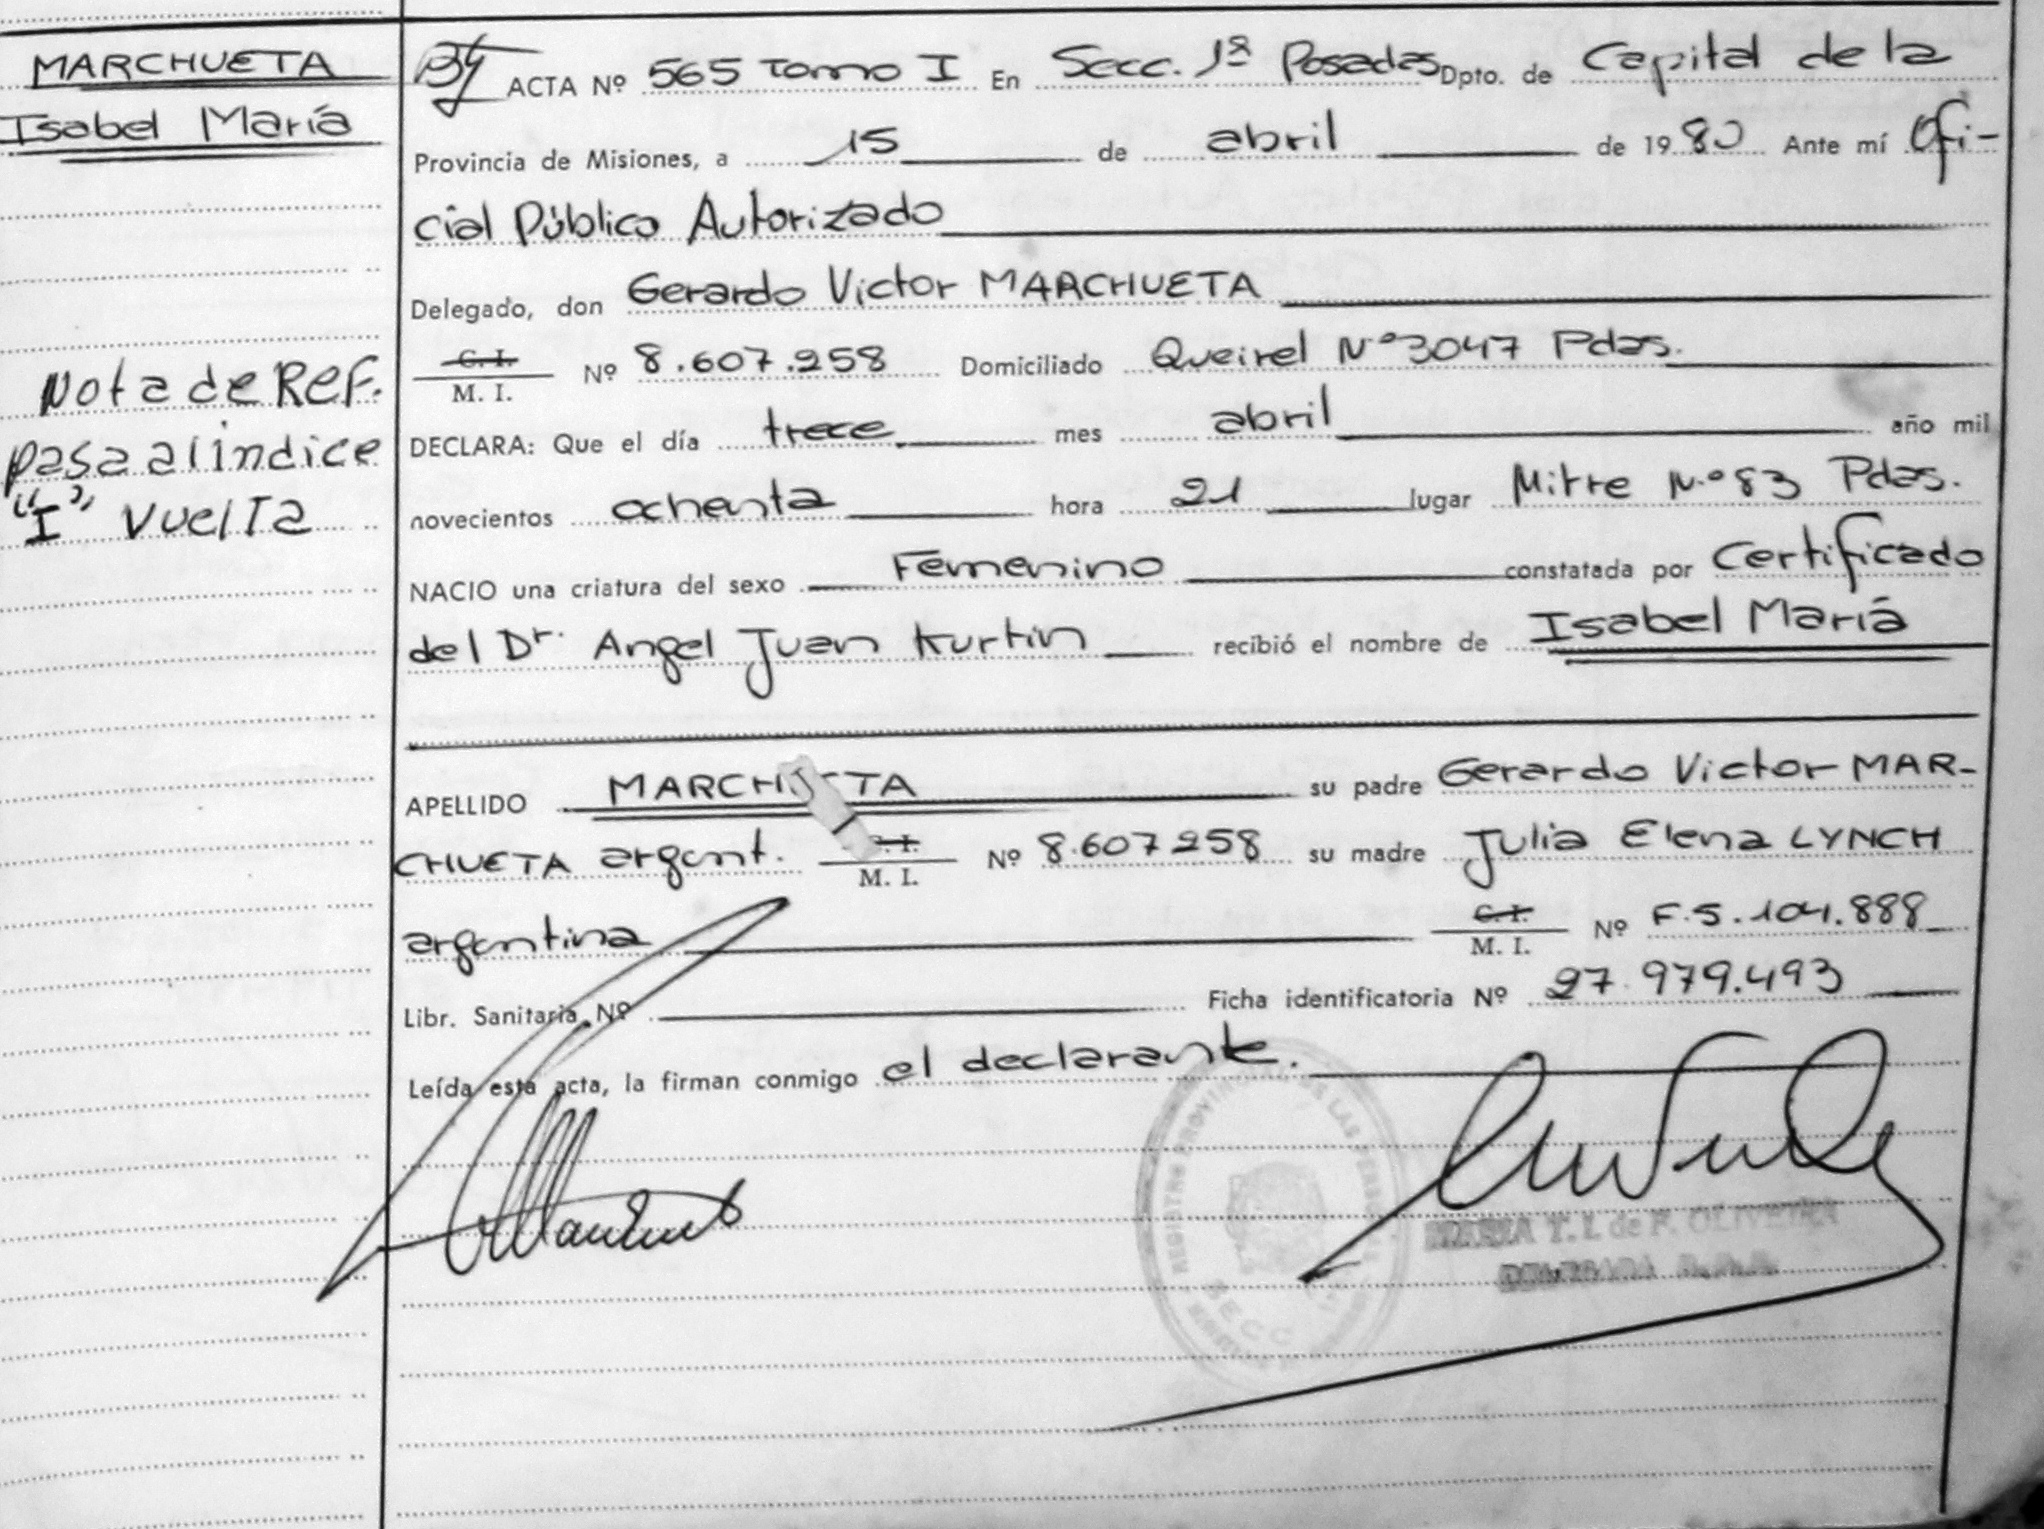 MARCHUETA
Isabel María
Nota de Ref.
pasa al indice
"I" vuelta
ACTA Nº 565 Tomo I En Secc. 1ª Posadas Dpto. de Capital de la
Provincia de Misiones, a 15 de abril de 1980 Ante mí Ofi-
cial Público Autorizado
Delegado, don Gerardo Victor MARCHUETA
C. I.
M. I. Nº 8.607.258 Domiciliado Queirel Nº 3047 Pdas.
DECLARA: Que el día trece mes abril año mil
novecientos ochenta hora 21 lugar Mitre N.º 83 Pdas.
NACIO una criatura del sexo Femenino constatada por Certificado
del Dr. Angel Juan Kurtin recibió el nombre de Isabel María
APELLIDO su padre Gerardo Victor MAR-
CHUETA argent. M. I. Nº 8.607258 su madre Julia Elena LYNCH
argentina C. I. M. I. Nº F.5.104.888
Libr. Sanitaria Nº Ficha identificatoria Nº 27.979.493
Leída esta acta, la firman conmigo el declarante.
REGISTRO PROVINCIAL DE LAS PERSONAS
SECC
MARIA T. I. de F. OLIVEIRA
DELEGADA